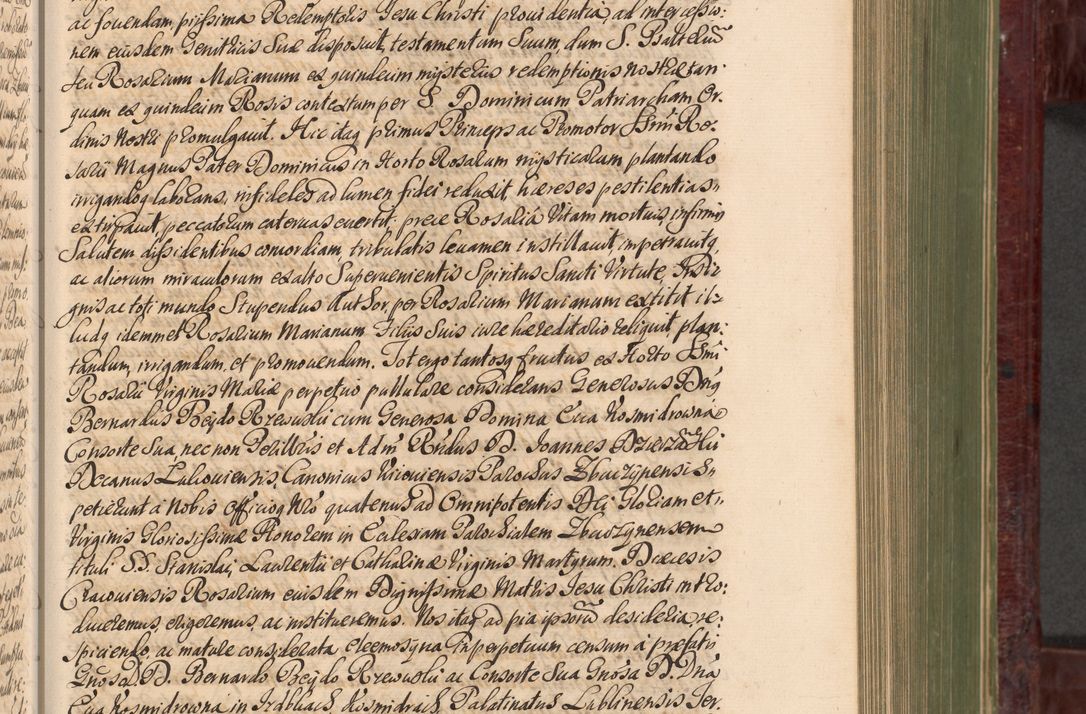 ac fovendam piissima Redemptoris Jesu Christi providentia, ad intercessio-
nem eiusdem Genitricis Suæ disposuit, testamentum Suum, dum S. Psalterium
seu Rosarium Marianum ex quindecim mysterijs redemptionis nostræ tan-
quam ex quindecim Rosis contextum per S. Dominicum Patriarcham Or-
dinis Nostri promulgavit. Hic itaq primus Princeps ac Promotor SSmi Ro-
sarii Magnus Pater Dominicus in Horto Rosarum mysticarum plantando
irrigandoq laborans, infideles ad lumen fidei reduxit, hæreses pestilentias
extirpavit, peccatorum catervas evertit, prece Rosariâ Vitam mortuis, infirmis
Salutem dissidentibus concordiam, tribulatis levamen instillavit impetravitq
ac aliorum miraculorum ex alto Supervenientis Spiritus Sancti Virtute
gnis ac toti mundo Stupendus Author, per Rosarium Marianum extitit il-
ludq idemmet Rosarium Marianum Filijs Suis iure hæreditario reliquit, plan-
tandum, irrigandum, et promovendum. Tot ergo tantosq fructus ex Horto SSmi
Rosarii Virginis Mariæ perpetuo pullulare considerans Generosus Dnus
Bernardus Bejdo Rzewuski cum Generosa Domina Eva Kosmidrowna
Consorte Sua, nec non Perillris et Adm Rndus D. Joannes
Decanus Lukoviensis, Canonicus Kijoviensis Parochus Zbuczynensis
petierunt a Nobis officioq Nro quatenus ad Omnipotentis Dei Gloriam et
Virginis Gloriosissimæ Honorem in Ecclesiam Parochialem Zbuczynensem
tituli S.S. Stanislai, Laurentii et Catharinæ Virginis Martyrum. Diœcesis
Cracoviensis Rosarium eiusdem Dignissimæ Matris Jesu Christi intro-
duceremus, erigeremus, ac institueremus. Nos itaq ad pia ipsorum desideria, re-
spiciendo, ac mature considerata eleemosyna in perpetuum censum à præfatis
Gnosa D.D. Bernardo Bejdo Rzewuski ac Consorte Sua Gnosa D. Dna
Eva Kosmidrowna in Kosmidrach Palatinatus Lublinensis Ter-